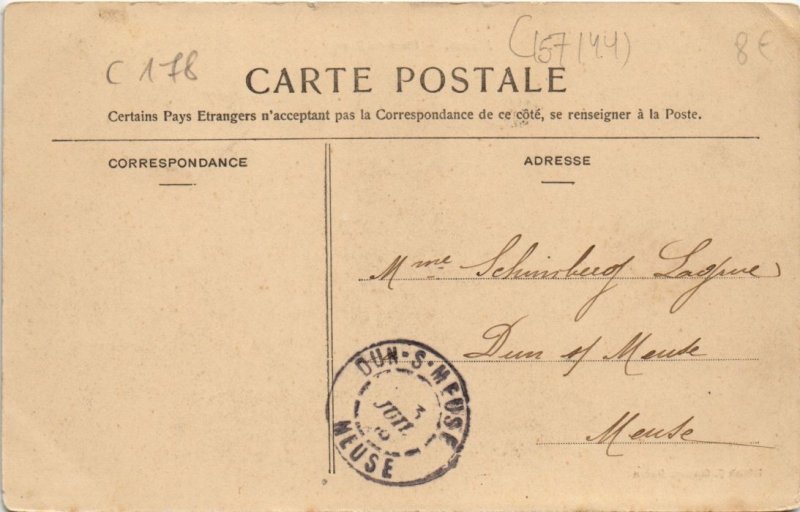 C 178
(157/44)
8€
CARTE POSTALE
Certains Pays Etrangers n'acceptant pas la Correspondance de ce côté, se renseigner à la Poste.
CORRESPONDANCE
ADRESSE
Mme
Dun s/ Meuse
Meuse
DUN-S-MEUSE
3
JUIL
MEUSE